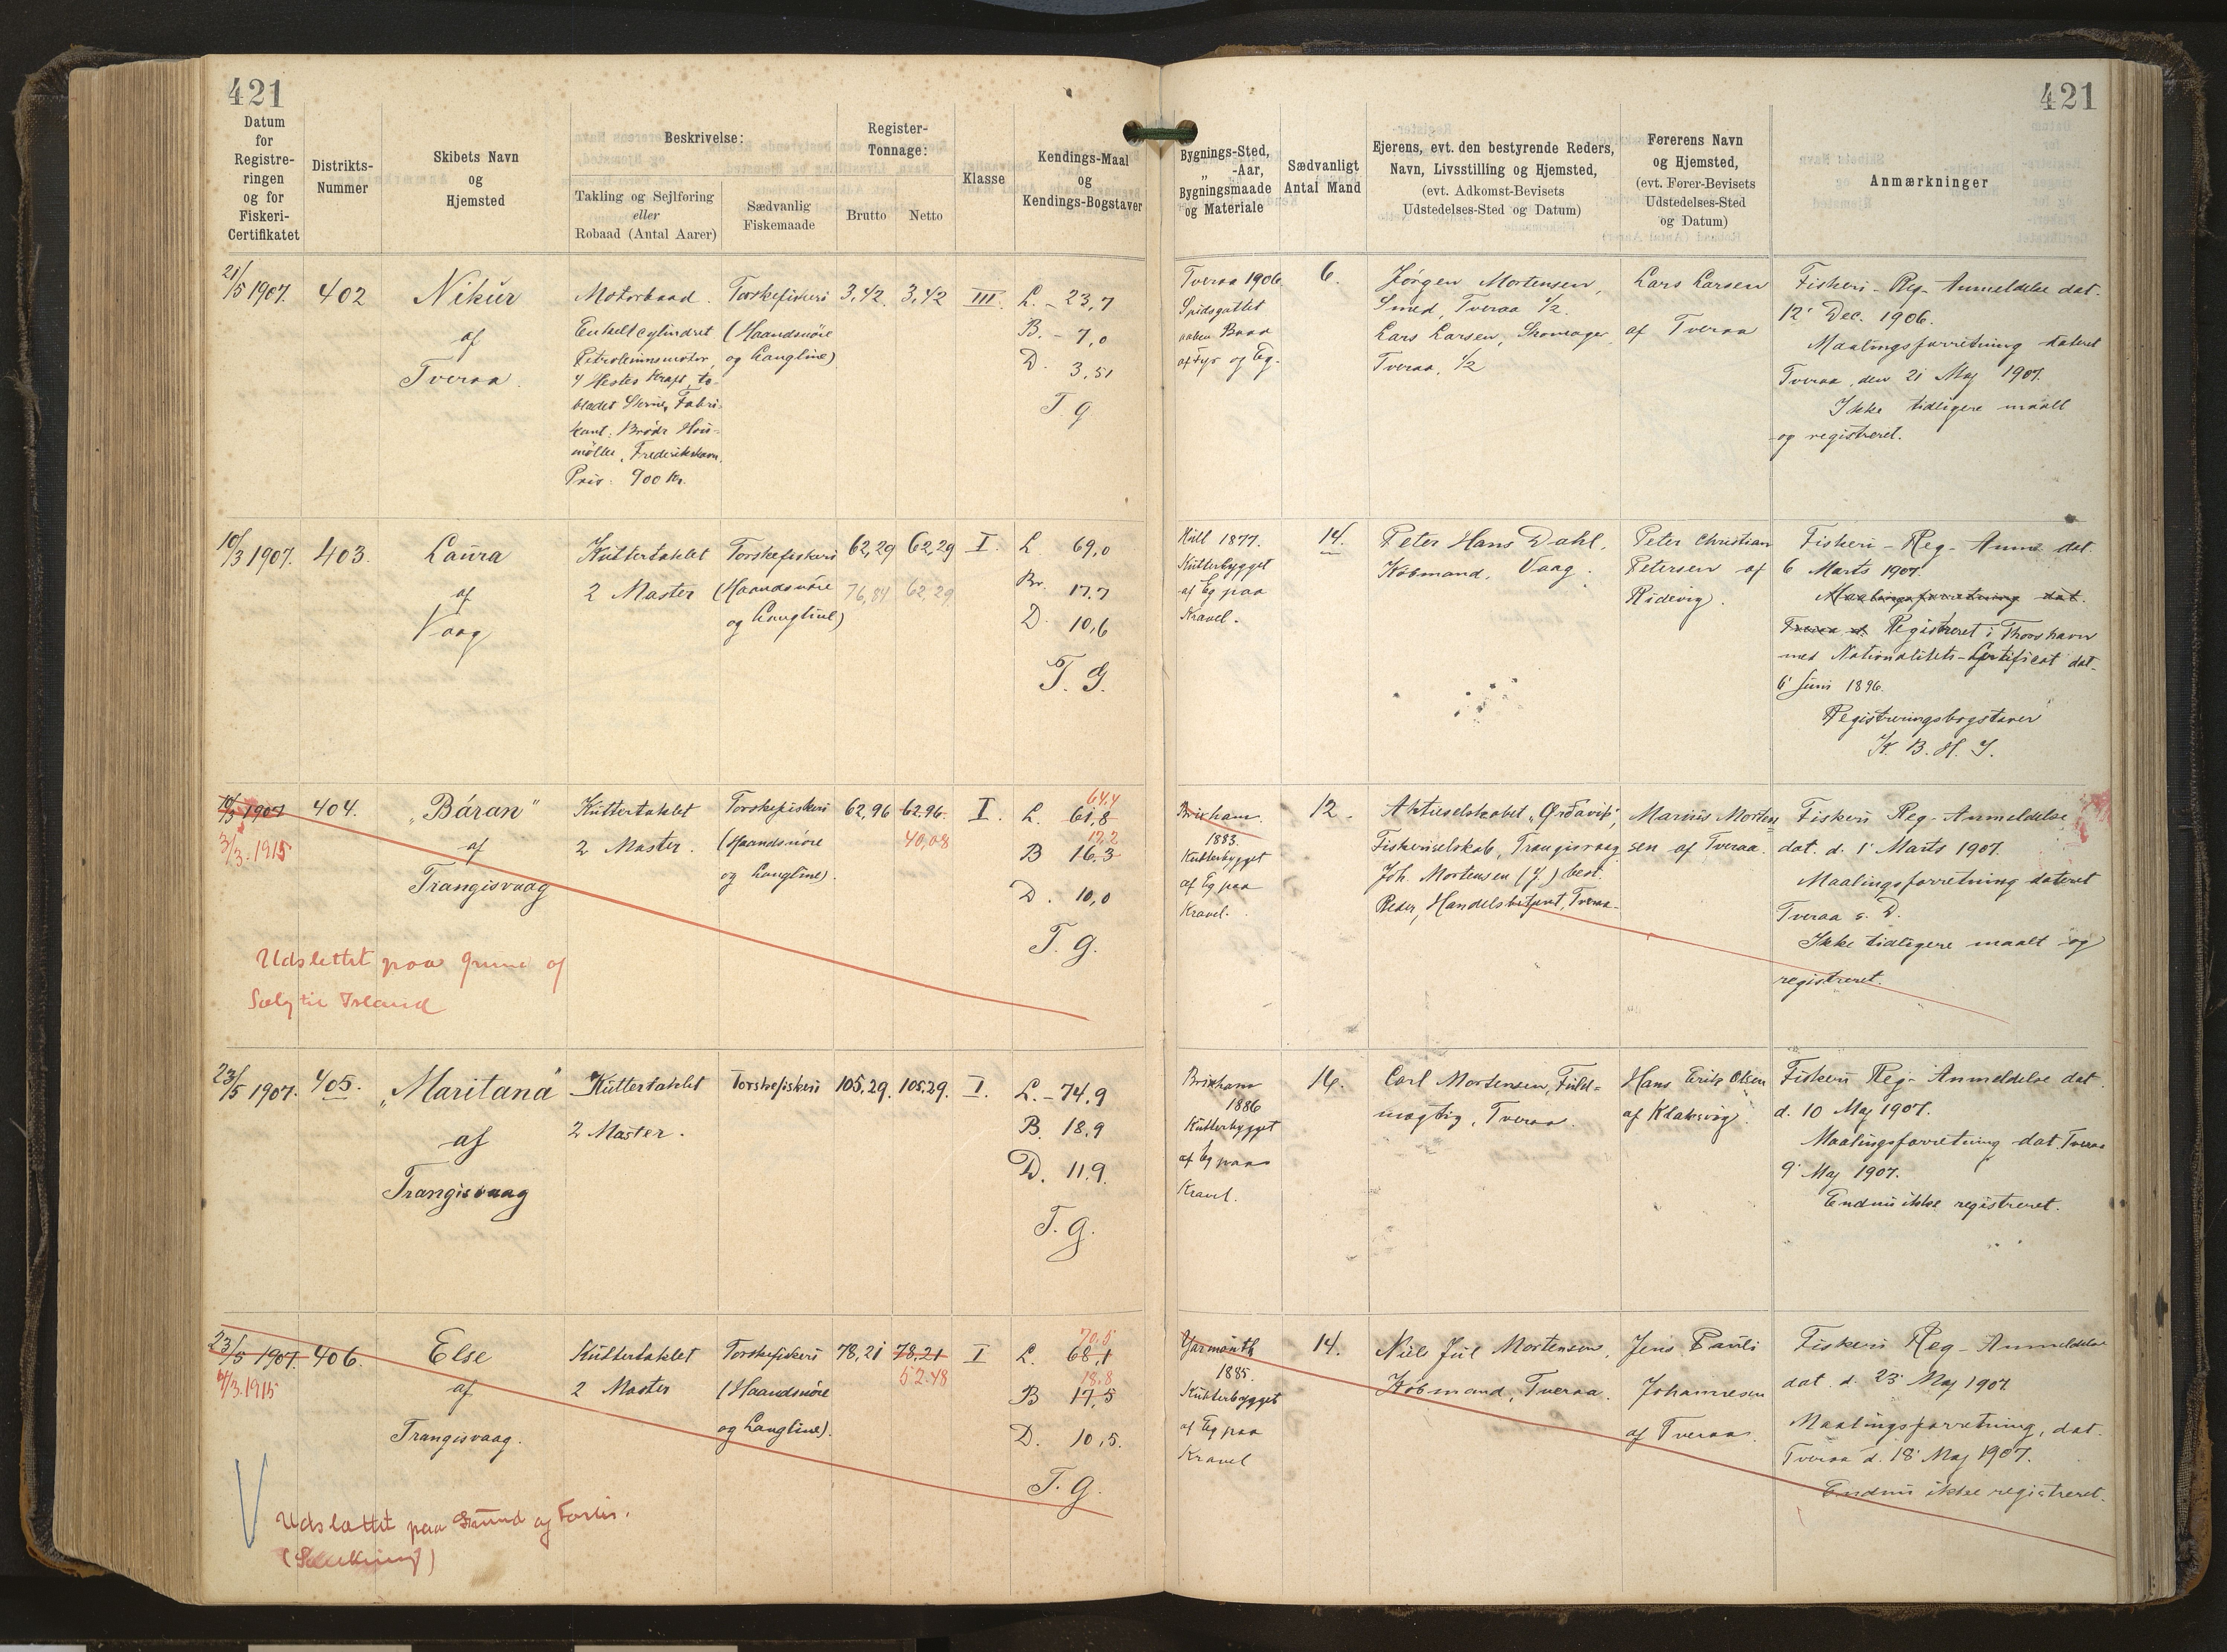 421
421
Datum
for
Registre-
ringen
og for
Fiskeri-
Certifikatet
Distrikts-
Nummer
Skibets Navn
og
Hjemsted
Beskrivelse:
Takling og Sejlføring
eller
Robaad (Antal Aarer)
Sædvanlig
Fiskemaade
Register-
Tonnage:
Brutto
Netto
Klasse
Kendings-Maal
og
Kendings-Bogstaver
Bygnings-Sted,
„ -Aar,
Bygningsmaade
og Materiale
Sædvanligt
Antal Mand
Ejerens, evt. den bestyrende Reders,
Navn, Livsstilling og Hjemsted,
(evt. Adkomst-Bevisets
Udstedelses-Sted og Datum)
Førerens Navn
og Hjemsted,
(evt. Fører-Bevisets
Udstedelses-Sted
og Datum)
Anmærkninger
21/5 1907.
402
Nikur
af
Tveraa.
Motorbaad.
Enkeltcylindret
Petroleumsmotor,
4 Hestes Kraft, to-
bladet Skrue, Fabri-
kant: Brødr. Hou-
møller, Frederikshavn.
Pris: 900 Kr.
Torskefiskeri
(Haandsnøre
og Langline)
3,42
3,42
III.
L. - 23,7
B. - 7,0
D. 3,51
T. g.
Tveraa 1906
Spidsgattet
aaben Baad
af Fyr og Eg.
6.
Jørgen Mortensen,
Smed, Tveraa 1/2.
Lars Larsen, Skomager,
Tveraa, 1/2
Lars Larsen
af Tveraa
Fiskeri-Reg-Anmeldelse dat.
12' Dec. 1906.
Maalingsforretning dateret
Tveraa, den 21 Maj 1907.
Ikke tidligere maalt
og registreret.
10/3 1907.
403.
Laura
af
Vaag
Kuttertaklet
2 Master
Torskefiskeri
(Haandsnøre
og Langline)
62,29
76,84
62,29
62,29
I.
L 69,0
Br. 17.7
D. 10,6
T. G.
Hull 1877.
Kutterbygget
af Eg paa
Kravel.
14.
Peter Hans Dahl,
Købmand, Vaag.
Peter Christian
Petersen af
Hidevig.
Fiskeri-Reg-Anm. dat.
6 Marts 1907.
Maalingsforretning dat.
Tveraa d. Registreret i Thorshavn
med Nationalitets-Certificat dat.
6' Juni 1896.
Registreringsbogstaver
K. B. H. J.
10/3 1907
3/3. 1915
404.
„Báran"
af
Trangisvaag
Udslettet paa Grund af
Salg til Island
Kuttertaklet
2 Master.
Torskefiskeri
(Haandsnøre
og Langline).
62,96
62.96.
40,08
I.
64.4
L. 61,8
B 16,3
D. 10,0
T. g.
Brixham
1883.
Kutterbygget
af Eg paa
Kravel.
12.
Aktieselskabet „Ørðavik",
Fiskeriselskab, Trangisvaag
Joh. Mortensen (f.) best.
Reder, Handelsbetjent, Tveraa.
Marius Morten
sen af Tveraa.
Fiskeri Reg-Anmeldelse
dat. d. 1' Marts 1907.
Maalingsforretning dateret
Tveraa s. D.
Ikke tidligere maalt og
registreret.
23/5 1907.
405.
„Maritana"
af
Trangisvaag
Kuttertaklet
2 Master.
Torskefiskeri
105,29.
105.29.
I.
L. - 74,9
B. 18,9
D. 11.9.
T. g.
Brixham
1886
Kutterbygget
af Eg paa
Kravel.
14.
Carl Mortensen, Fuld-
mægtig, Tveraa.
Hans Erik Olsen
af Klaksvig.
Fiskeri Reg-Anmeldelse dat.
d. 10 Maj 1907.
Maalingsforretning dat. Tveraa
9' Maj 1907.
Endnu ikke registreret.
23/5 1907.
406.
Else
af
Trangisvaag.
Udslettet paa Grund af Forlis.
Kuttertaklet
2 Master
Torskefiskeri
(Haandsnøre
og Langline).
78,21
78,21
52.48
I
70,5
L. 68,1
18.8
B 17,5
D. 10,5.
T. g.
Yarmouth
1885.
Kutterbygget
af Eg paa
Kravel
14.
Niels Jul Mortensen,
Købmand, Tveraa.
Jens Pauli
Johannesen
af Tveraa.
Fiskeri Reg-Anmeldelse
dat. d. 23' Maj 1907
Maalingsforretning, dat.
Tveraa d. 18' Maj 1907.
Endnu ikke registreret.